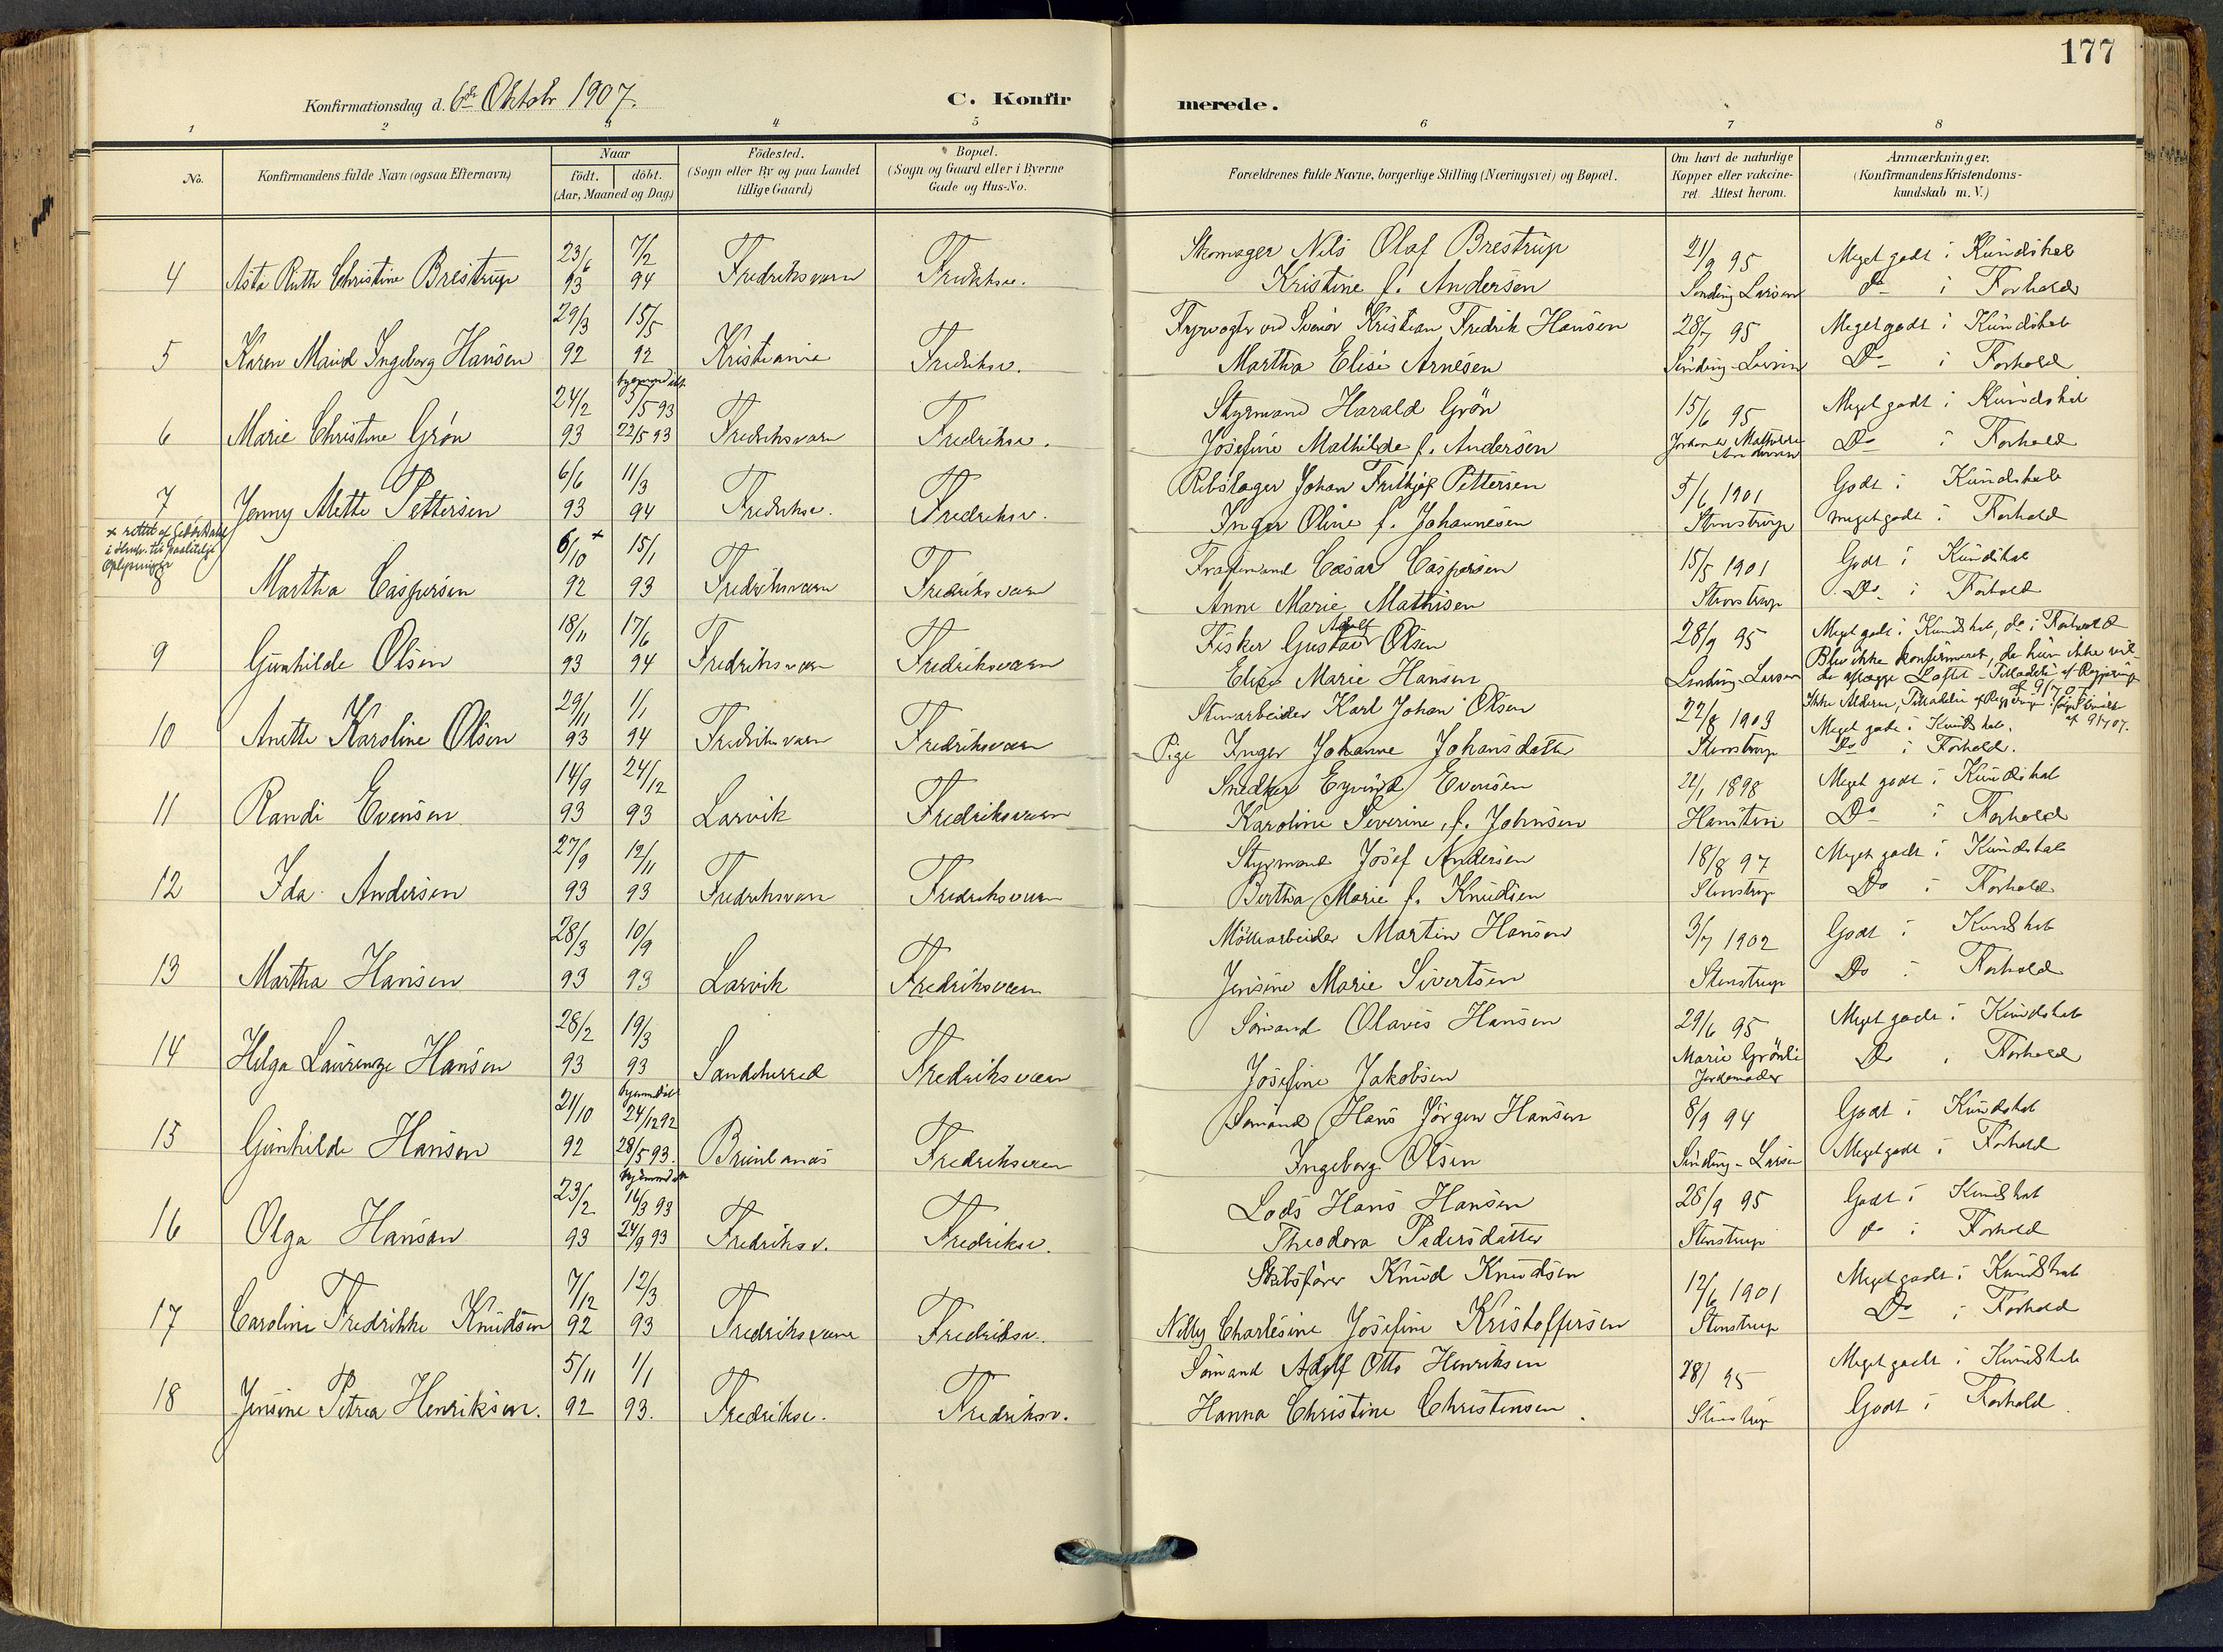 177
Konfirmationsdag d. 6te Oktobr 1907.
C. Konfirmerede.
1 2 3 4 5 6 7 8
No.
Konfirmandens fulde Navn (ogsaa Efternavn)
Naar
födt. döbt.
(Aar, Maaned og Dag)
Födested.
(Sogn eller By og paa Landet
tillige Gaard)
Bopæl.
(Sogn og Gaard eller i Byerne
Gade og Hus-No.
Forældrenes fulde Navne, borgerlige Stilling (Næringsvei) og Bopæl.
Om havt de naturlige
Kopper eller vakcine-
ret. Attest herom.
Anmærkninger.
(Konfirmandens Kristendoms-
kundskab m. V.)
23/6 7/2 Skomager Nils Olaf Brestrup 21/9 95 Meget godt i Kundskab
4 Asta Ruth Christine Brestrup 93 94 Fredriksværn Fredriksv. Kristine f. Andersen Sinding Larsen do i Forhold
29/3 15/5 Fyrvogter ved Svenør Kristian Fredrik Hansen 28/7 95 Meget godt i Kundskab
5 Karen Maud Ingeborg Hansen 92 92 Kristiania Fredriksv. Martha Elise Arnesen Sinding-Larsen Do i Forhold
hjemmedøbt
24/2 /5 93 Styrmand Harald Grøn 15/6 95 Meget godt i Kundskab
6 Marie Christine Grøn 93 22/5 93 Fredriksværn Fredriksv. Josefine Mathilde f. Andersen Mathilde Andersen Do i Forhold
6/6 11/3 Rebslager Johan Frithjof Pettersen 5/6 1901 Godt i Kundskab
7 Jenny Mette Pettersen 93 94 Fredriksv. Fredriksv. Inger Oline f. Johannesen Stenstrup meget godt i Forhold
x rettet af
i
Oplysninger
6/10 x 15/1 Cæsar Caspersen 15/5 1901 Godt i Kundskab
8 Martha Caspersen 92 93 Fredriksværn Fredriksværn Anne Marie Mathisen Stenstrup Do i Forhold
18/11 17/6 Fisker Gustav Adolf Olsen 28/9 95 Meget godt i Kundskab, do i Forhold
9 Gunhilde Olsen 93 94 Fredriksværn Fredriksværn Elise Marie Hansen Sinding-Larsen Blev ikke konfirmeret, da hun ikke vil-
de aflægge Løftet - Tilladelse af
29/11 1/1 Stenarbeider Karl Johan Olsen 22/8 1903 Ikke Alderen, Tilladelse af
af 9/7 07.
10 Anette Karoline Olsen 93 94 Fredriksværn Fredriksværn Pige Inger Johanne Johansdatter Stenstrup Meget godt i Kundskab.
Do i Forhold.
14/9 24/12 Snedker Eyvind Evensen 22/1 1898 Meget godt i Kundskab
11 Randi Evensen 93 93 Larvik Fredriksværn Karoline Severine, f. Johnsen Hansteen Do i Forhold
27/9 12/11 Styrmand Josef Andersen 18/8 97 Meget godt i Kundskab
12 Ida Andersen 93 93 Fredriksværn Fredriksværn Bertha Marie f. Knudsen Stenstrup Do i Forhold
28/3 10/9 Møllearbeider Martin Hansen 3/7 1902 Godt i Kundskab
13 Martha Hansen 93 93 Larvik Fredriksværn Jensine Marie Sivertsen Stenstrup Do i Forhold
28/2 19/3 Sømand Olaves Hansen 29/6 95 Meget godt i Kundskab
14 Helga Laurenze Hansen 93 93 Sandeherred Fredriksværn Josefine Jakobsen Marie Grønli
Jordemoder Do i Forhold
hjemmedøbt
21/10 24/12 92 Sømand Hans Jørgen Hansen 8/9 94 Godt i Kundskab
15 Gunhilde Hansen 92 28/5 93. Brunlanæs Fredriksværn Ingeborg Olsen Sinding-Larsen Meget godt i Forhold
hjemmedøbt
23/2 16/3 93 Lods Hans Hansen 28/9 95 Godt i Kundskab
16 Olga Hansen 93 24/9 93 Fredriksv. Fredriksv. Theodora Pedersdatter Stenstrup do i Forhold
7/12 12/3 Skibsfører Knud Knudsen 12/6 1901 Meget godt i Kundskab
17 Caroline Fredrikke Knudsen 92 93 Fredriksværn Fredriksv. Nelly Charlesine Josefine Kristoffersen Stenstrup Do i Forhold
5/11 1/1 Sømand Adolf Otto Henriksen 28/ 95 Meget godt i Kundskab
18 Jensine Petrea Henriksen. 92 93. Fredriksv. Fredriksv. Hanna Christine Christensen. Stenstrup Godt i Forhold